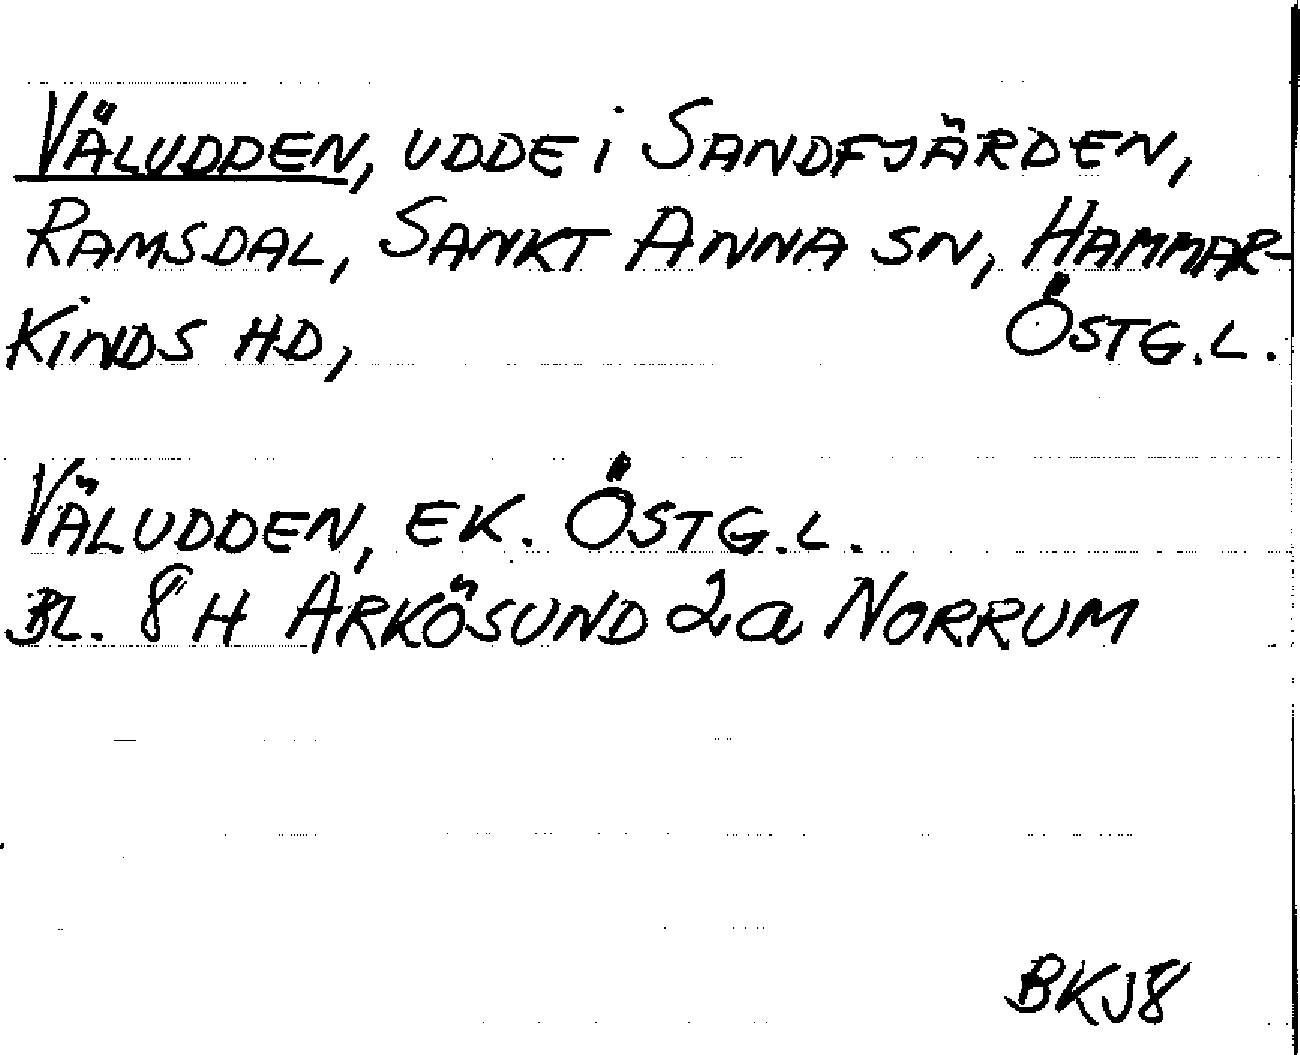 VÄLUDDEN, UDDE i SANDFJÄRDEN,
RAMSDAL, SANKT ANNA SN, HAMMAR-
KINDS HD, ÖSTG.L.
VÄLUDDEN, EK. ÖSTG.L.
BL. 8H ARKÖSUND 2a NORRUM
BKJ8